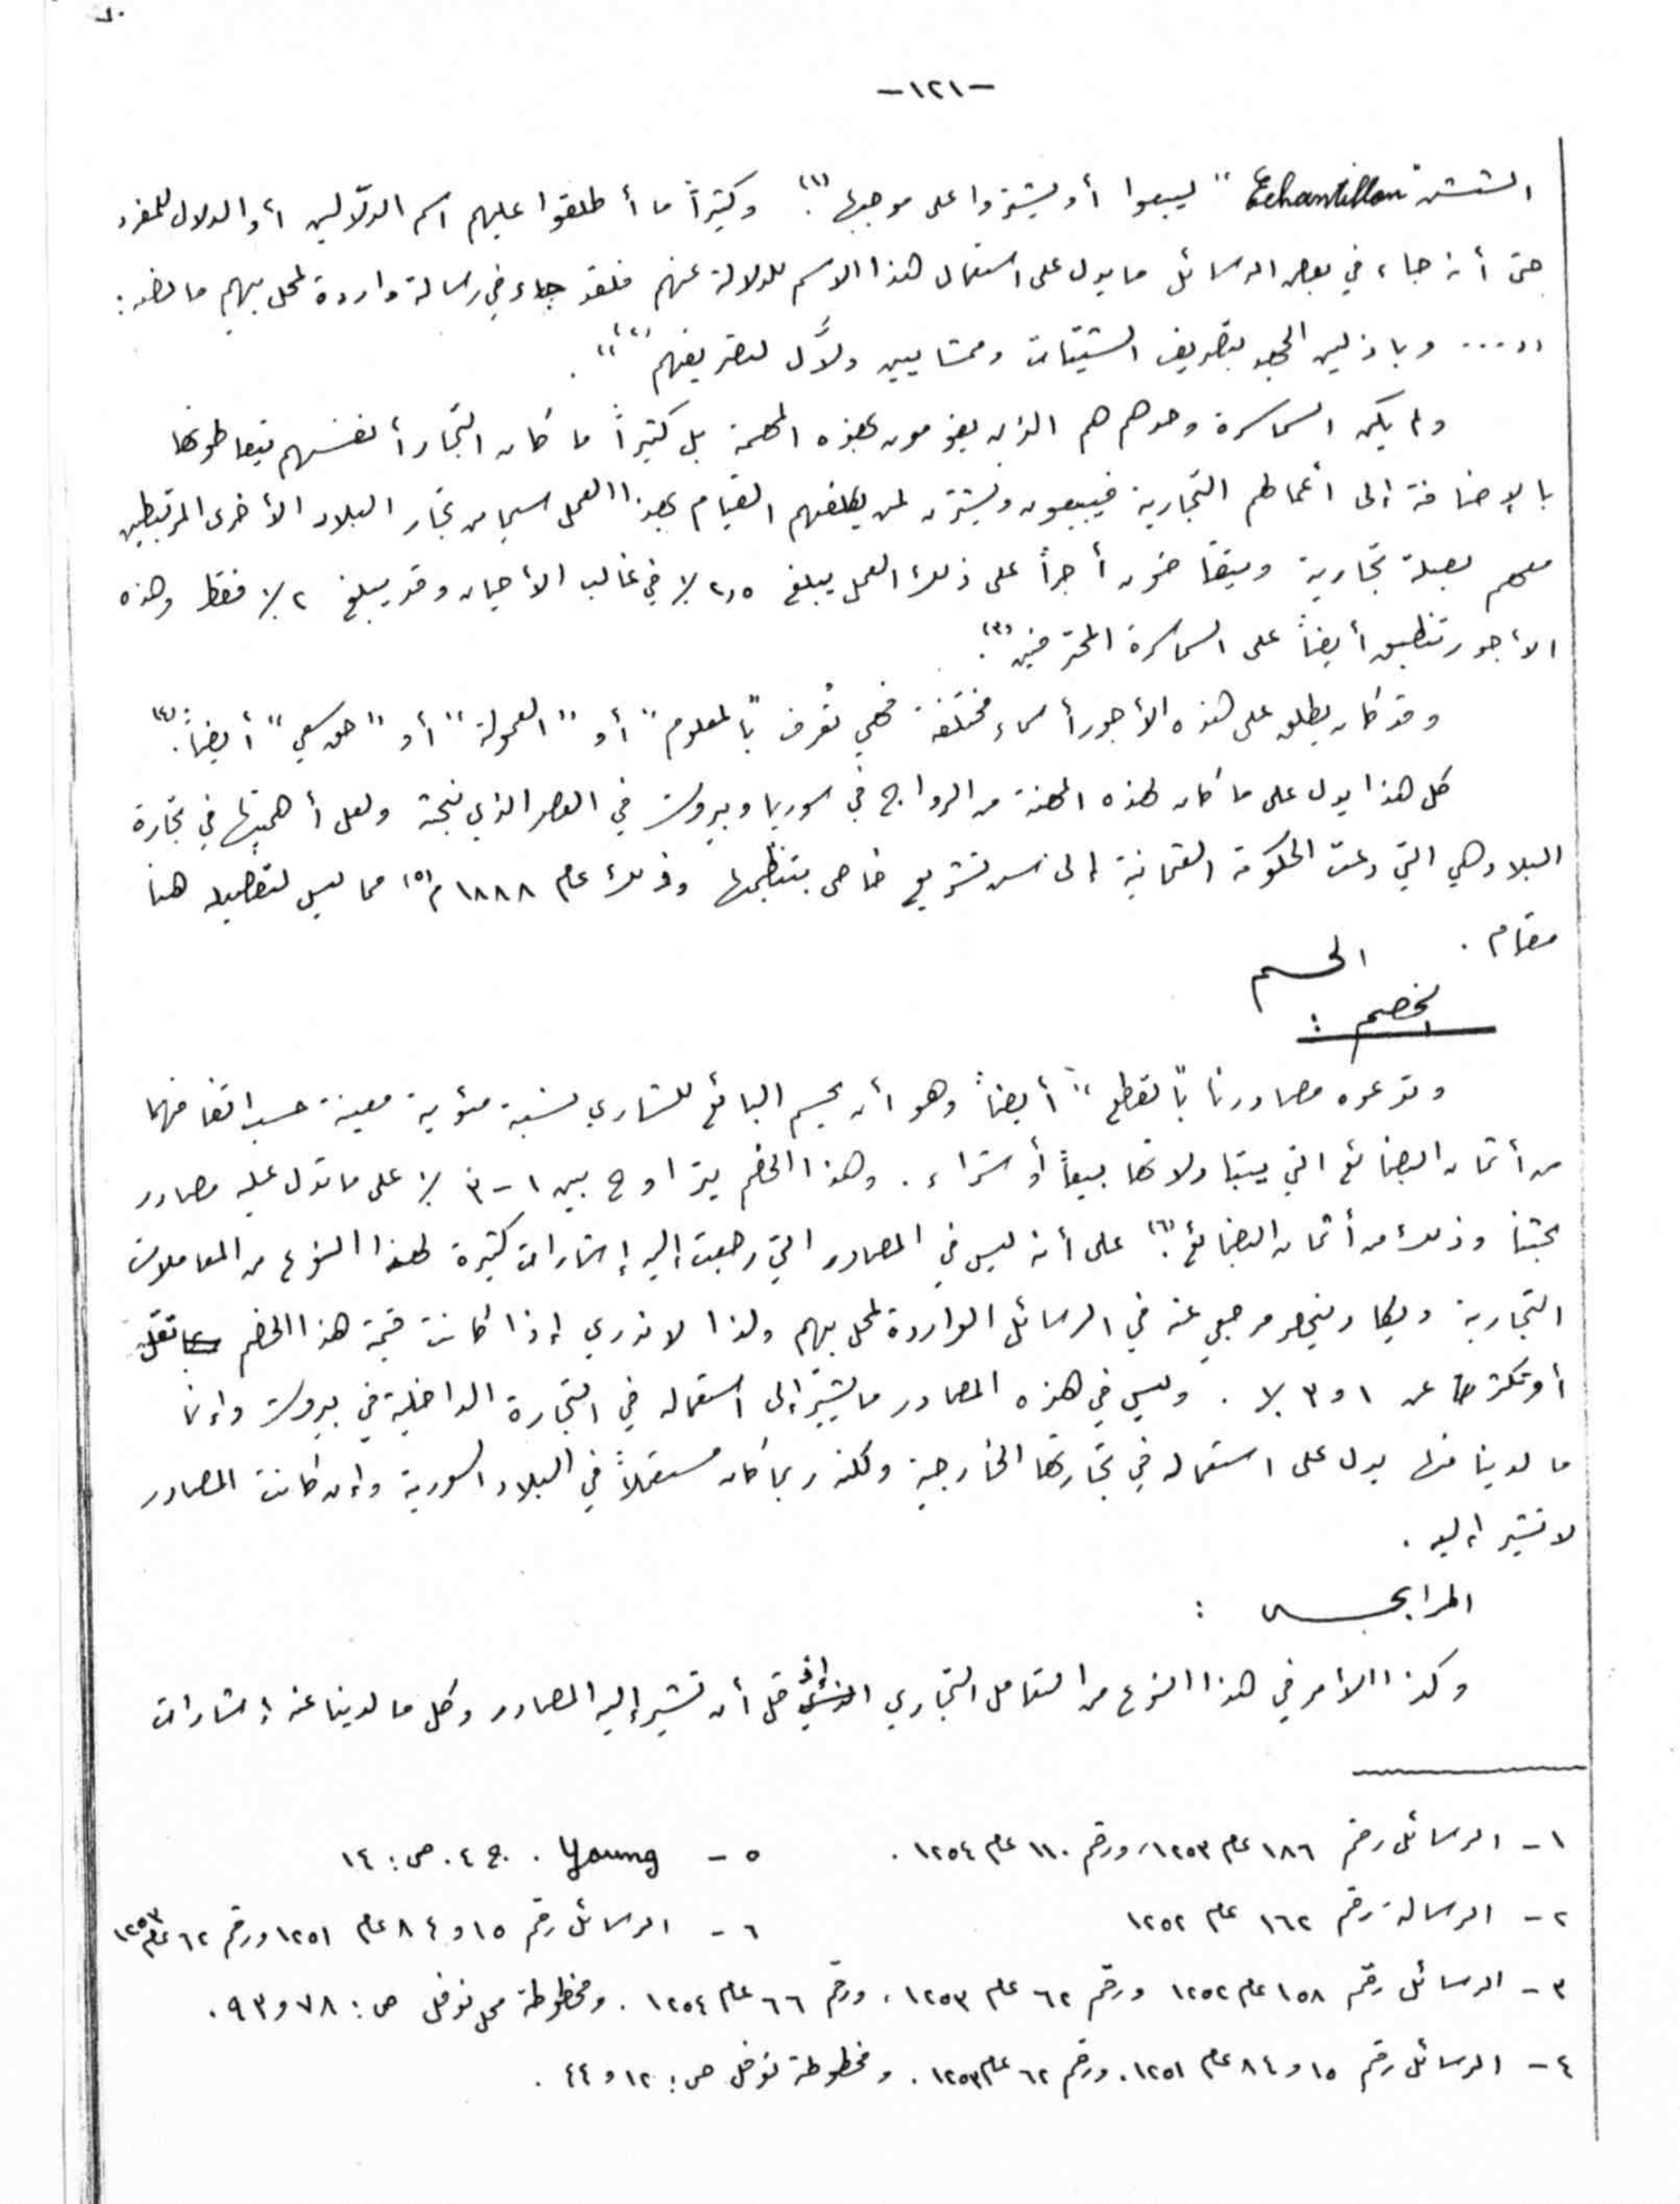 -١٢١-
الششن "Echantillon" ليبيعوا أو يشتروا على موجبها(١). وكثيراً ما أطلقوا عليهم اسم الدلّالين، أو الدلال للمفرد
حتى أنه جاء في بعض الرسائل ما يدل على استعمال هذا الاسم للدلالة عنهم فلقد جاء في رسالة واردة لمحل بيهم ما نصه:
".... وباذلين الجهد بتصريف الشيتات وممشايين دلاَّل لتصريفهم"(٢).
ولم يكن السماسرة وحدهم هم الذين يقومون بهذه المهمة بل كثيراً ما كان التجار أنفسهم يتعاطونها
بالإضافة إلى أعمالهم التجارية فيبيعون ويشترن لمن يكلفهم القيام بهذا العمل سيما من تجار البلاد الأخرى المرتبطين
معهم بصلة تجارية ويتقاضون أجراً على ذلك العمل يبلغ ٢,٥٪ في غالب الأحيان وقد يبلغ ٢٪ فقط وهذه
الأجور تنطبق أيضاً على السماسرة المحترفين(٣).
وقد كان يطلق على هذه الأجور أسماء مختلفة فهي تُعرف "بالمعلوم" أو "العمولة" أو "حق سعي" أيضاً(٤).
كل هذا يدل على ما كان لهذه المهنة من الرواج في سوريا وبيروت في العصر الذي نبحثه ولعل أهميتها في تجارة
البلاد هي التي دعت الحكومة العثمانية إلى سن تشريع خاص بتنظيمها وذلك عام ١٨٨٨م(٥) مما ليس لتفصيله هنا
مقام.
الحسم
الخصم:
وتدعوه مصادرنا "بالقطع" أيضاً وهو أن يحسم البائع للشاري نسبة مئوية معينة حسب اتفاقهما
من أثمان البضائع التي يتبادلانها بيعاً أو شراء. وهذا الخصم يتراوح بين ١-٣٪ على ما تدل عليه مصادر
بحثنا وذلك من أثمان البضائع(٦). على أنه ليس في المصادر التي رجعت إليها إشارات كثيرة لهذا النوع من المعاملات
التجارية ويكاد ينحصر مرجعي عنه في الرسائل الواردة لمحل بيهم ولذا لا ندري إذا كانت قيمة هذا الخصم تقل
أو تكثر عن ١ و٣٪. وليس في هذه المصادر ما يشير إلى استعماله في التجارة الداخلية في بيروت وإنما
ما لدينا منها يدل على استعماله في تجارتها الخارجية ولكنه ربما كان مستعملاً في البلاد السورية وإن كانت المصادر
لا تشير إليه.
المرابحـــــة :
وكذا الأمر في هذا النوع من التعامل التجاري إذ قل أن تشير إليه المصادر وكل ما لدينا عنه إشارات
١- الرسائل رقم ١٨٦ عام ١٢٥٣، ورقم ١١٠ عام ١٢٥٤.
٢- الرسالة رقم ١٦٢ عام ١٢٥٢
٣- الرسائل رقم ١٥٨ عام ١٢٥٢ ورقم ٦٢ عام ١٢٥٣، ورقم ٦٦ عام ١٢٥٤. ومخطوطة محل نوفل ص: ٧٨ و٩٣.
٤- الرسائل رقم ١٥ و٨٤ عام ١٢٥١. ورقم ٦٢ عام ١٢٥٣. ومخطوطة نوفل ص: ١٢ و٤٤.
٥- Young. ج ٤. ص: ١٤
٦- الرسائل رقم ١٥ و٨٤ عام ١٢٥١ ورقم ٦٢ عام ١٢٥٣